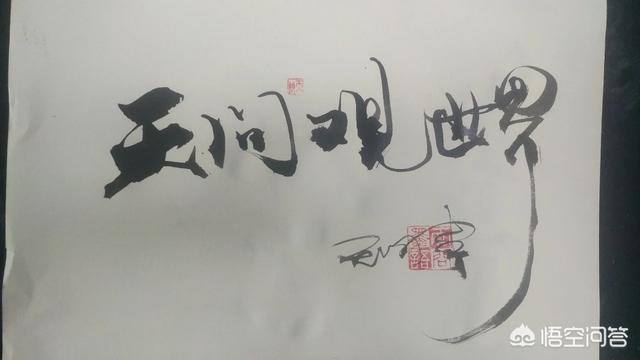 天问观世界
悟空问答